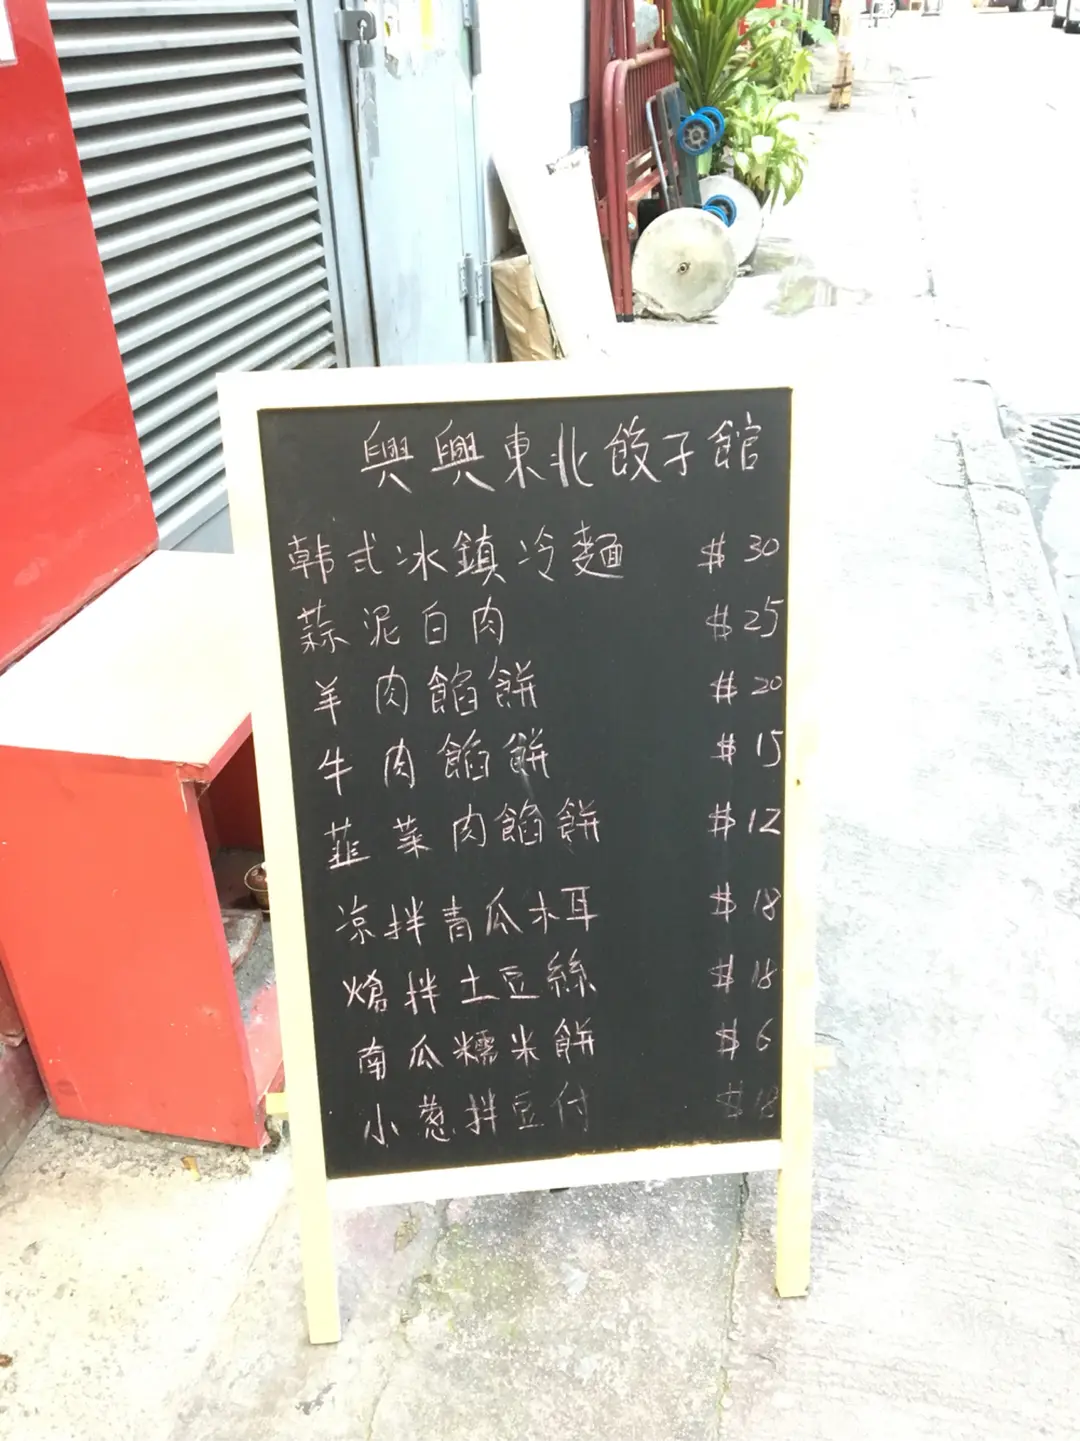 興興東北餃子館
韩式冰鎮冷麵 $30
蒜泥白肉 $25
羊肉餡餅 $20
牛肉餡餅 $15
韮菜肉餡餅 $12
凉拌青瓜木耳 $18
熗拌土豆絲 $18
南瓜糯米餅 $6
小葱拌豆付 $18